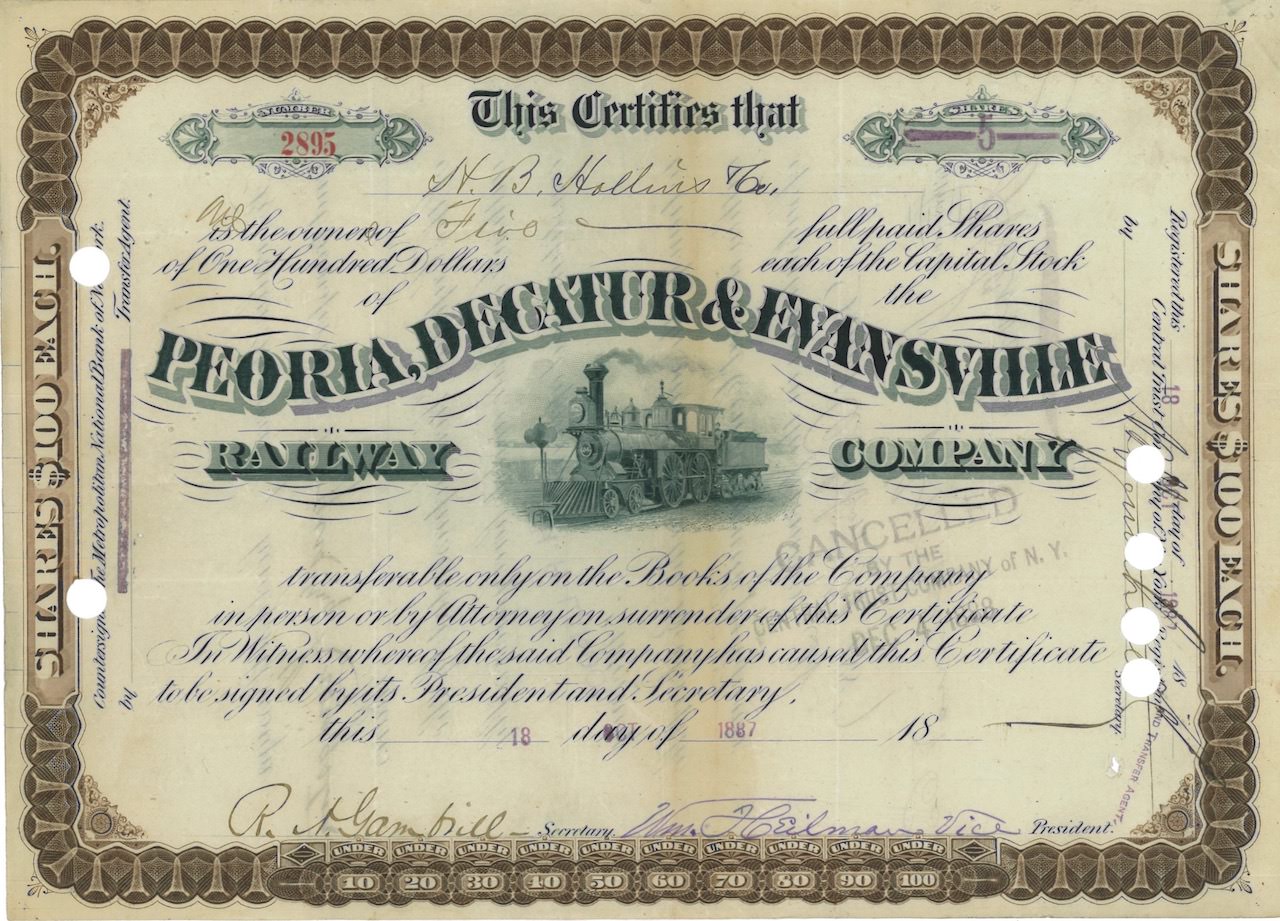 This Certifies that
NUMBER
2895
SHARES
5
H. B. Hollins & Co,
is the owner of Five full paid Shares
of One Hundred Dollars each of the Capital Stock
of the
PEORIA, DECATUR & EVANSVILLE
RAILWAY COMPANY
CANCELLED
BY THE
CENTRAL TRUST COMPANY of N. Y.
DEC
transferable only on the Books of the Company
in person or by Attorney on surrender of this Certificate
In Witness whereof the said Company has caused this Certificate
to be signed by its President and Secretary,
this 18 day of OCT 1887 18
R. A. Gambrill Secretary. Wm. Heilman Vice President.
UNDER 10 UNDER 20 UNDER 30 UNDER 40 UNDER 50 UNDER 60 UNDER 70 UNDER 80 UNDER 90 UNDER 100
SHARES $100 EACH.
Countersigned the Metropolitan National Bank of New York.
by Transfer Agent.
Registered this 18 day of 18
by Secretary
AND TRANSFER AGENT.
SHARES $100 EACH.